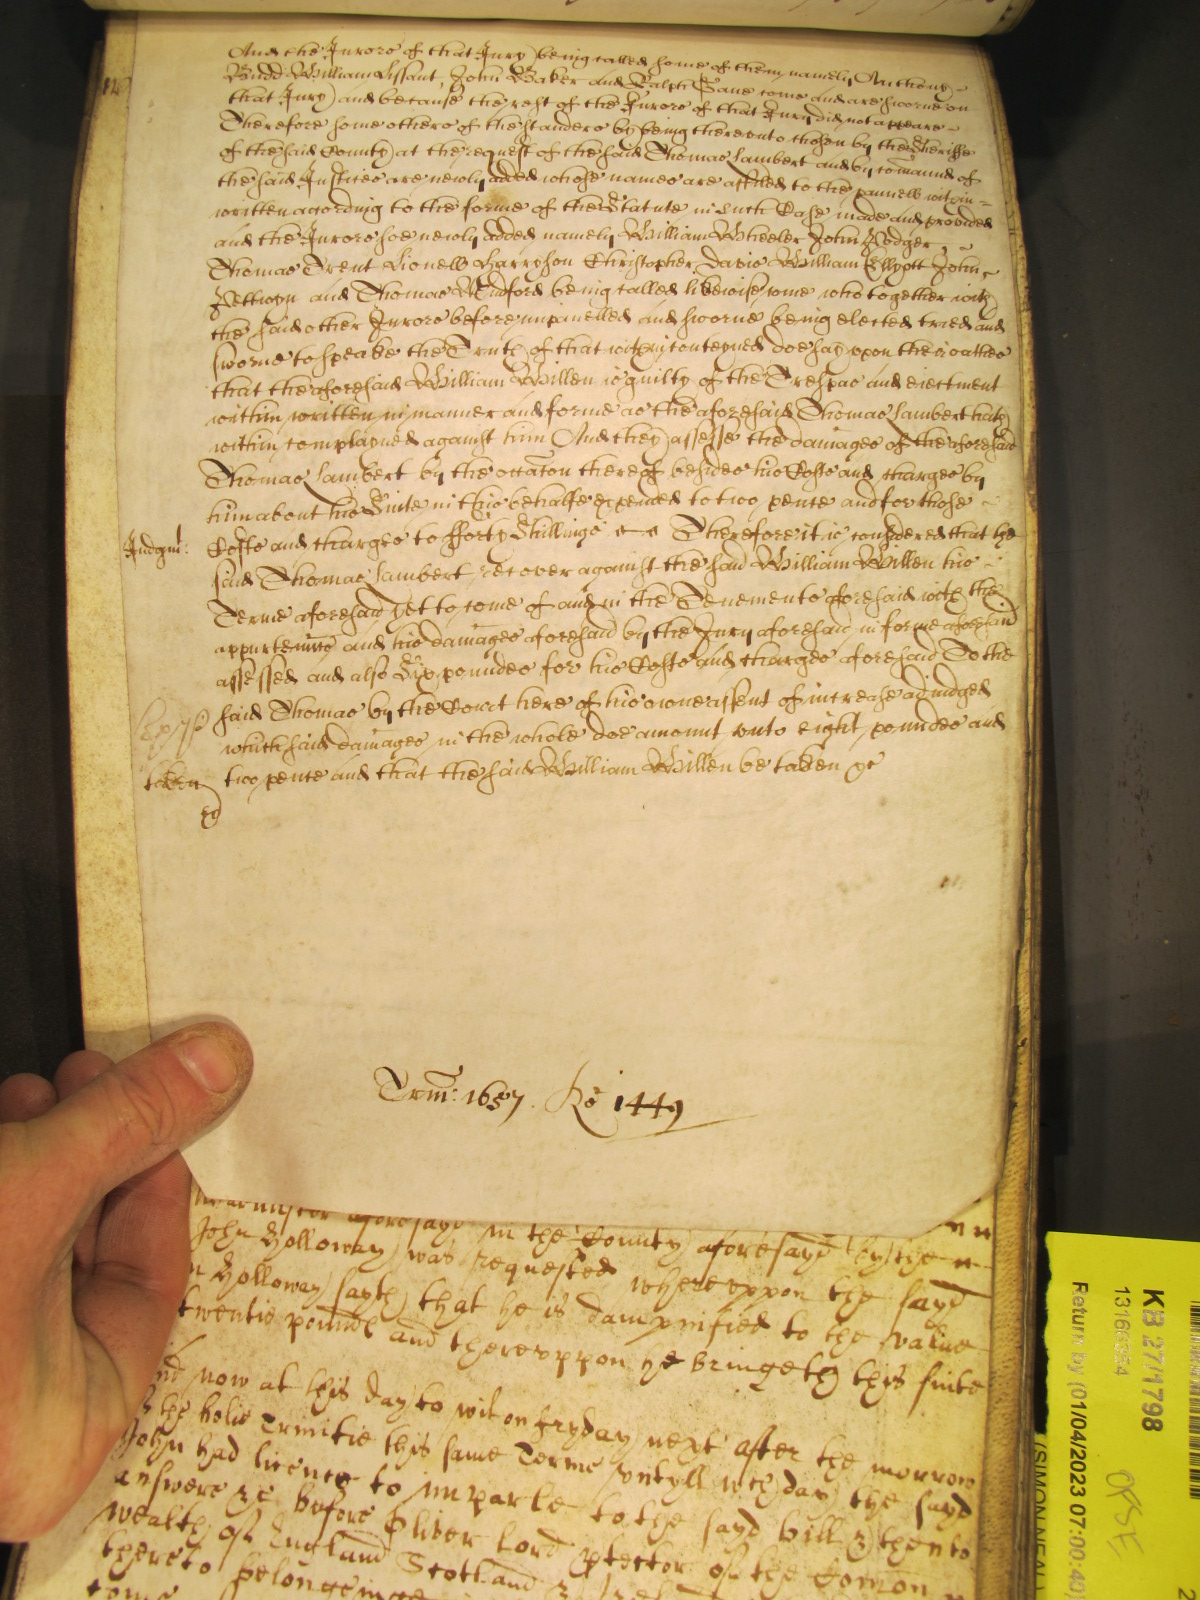 And the Jurors of that Jury being called some of them namely Anthony
Budd William Lissant, John Baker and Ralph Sane come and are sworne on
that Jury and because the rest of the Jurors of that Jury did not appeare
Therefore some others of the standers by being thereunto chosen by the Sheriffe
of the said County at the request of the said Thomas Lambert and by com̄and of
the said Justices are newly added whose names are affiled to the pannell within
written according to the forme of the Statute in such Case made and provided
and the Jurors soe newly added namely William Wheeler John Rodger
Thomas Trent Lionell Harryson Christopher Davis William Ellyott John
and Thomas Mudford being called likewise come who together with
the said other Jurors before impanelled and sworne being elected tried and
sworne to speake the Truth of that within conteyned doe say upon their oathes
that the aforesaid William Willen is guilty of the Trespas and eiectment
within written in manner and forme as the aforesaid Thomas Lambert hath
within complayned against him And they assesse the damages of the aforesaid
Thomas Lambert by the occac̄on thereof besides his Costs and charges by
him about his Suite in this behalfe expended to two pence and for those
Judgmt: Costs and charges to fforty Shillings Therefore it is considered that the
said Thomas Lambert recover against the said William Willen his
Terme aforesaid yet to come of and in the Tenements aforesaid with the
appurten̄nces and his damages aforesaid by the Jury aforesaid in forme aforesaid
assessed and also Six poundes for his Costs and charges aforesaid To the
said Thomas by the Court here of his owne assent of increase adiudged
which said damages in the whole doe amount unto eight poundes and
taken two pence and that the said William Willen be taken &c
Trin: 1657. Ro 1449
aforesayd in the County aforesayd by the
John Holloway was requested whereuppon the sayd
Holloway sayth that he is dampnified to the value
twentie pounde and thereuppon he bringeth this suite
now at this day to wit on fryday next after the morrow
the holie Trinitie this same Terme untyll wch day the sayd
John had licence to imparle to the sayd bill & then to
answere &c before Oliver Lord Ptector of the Com̄on
wealth of England Scotland &
thereto belonginge
KB 27/1798
13166354
Return by (01/04/2023 07:00:40)
(SIMON NEAL)